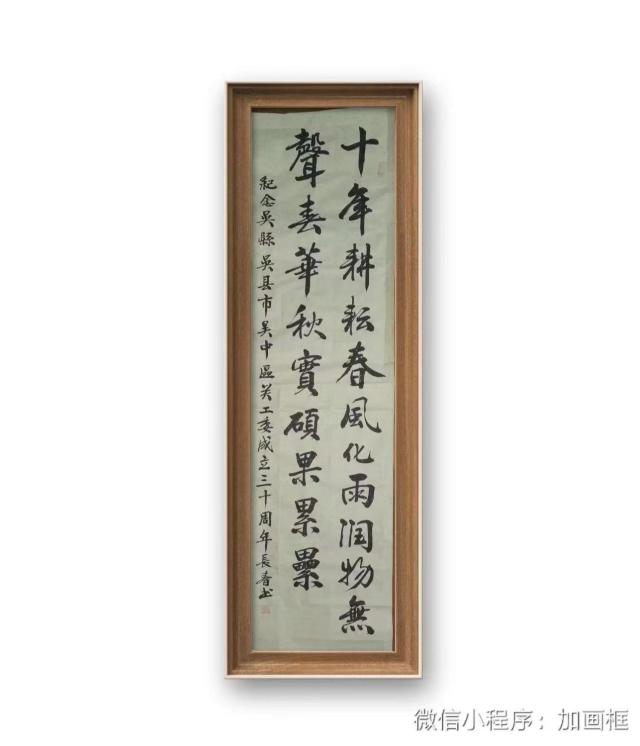 十年耕耘春風化雨润物無
聲春華秋實碩果累纍
紀念吳縣吳县市吴中區关工委成立三十周年長春书
微信小程序：加画框